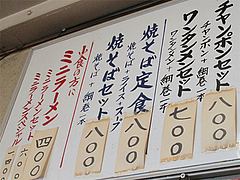 チャンポンセット
チャンポン+網巻一本
八〇〇
ワンタンメンセット
ワンタンメン+網巻一本
七〇〇
焼そば定食
焼そば+ライス+スープ
八〇〇
焼そばセット
焼そば+網巻一本
八〇〇
小食の方に
ミニラーメン
四〇〇
ミニラーメンセット
ミニラーメンスペシャル